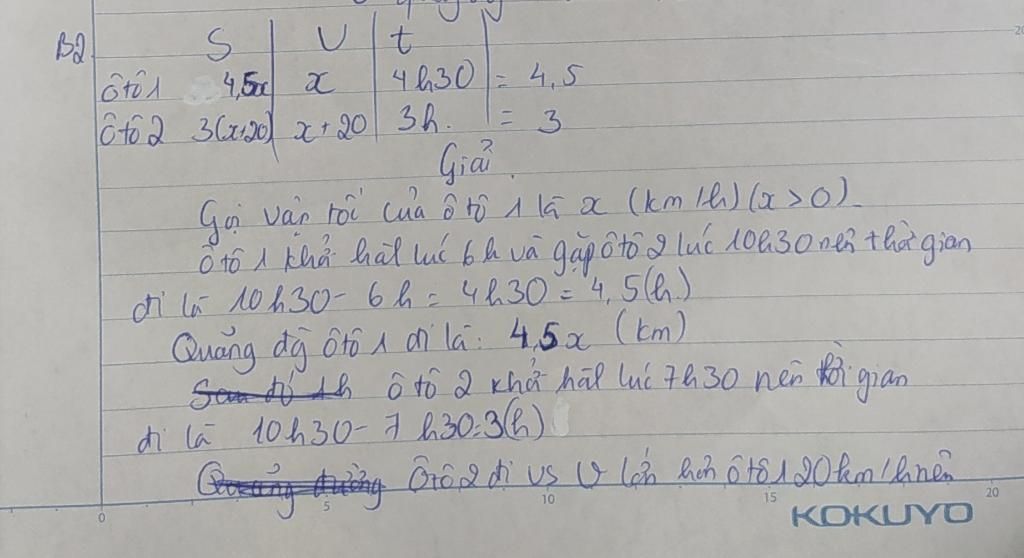 B2 S V t
ôtô1 4,5x x 4h30 = 4,5
Ôtô2 3(x+20) x+20 3h. = 3
Giải.
Gọi vận tốc của ôtô 1 là x (km/h) (x>0)
Ôtô 1 khởi hàh lúc 6h và gặp ôtô 2 lúc 10h30 nên thời gian
đi là 10h30 - 6h = 4h30 = 4,5(h)
Quãng đg ôtô 1 đi là: 4,5x (km)
Sau đó 1h ôtô 2 khởi hàh lúc 7h30 nên thời gian
đi là 10h30 - 7h30=3(h)
Quãng đường Ôtô2 đi vs V lớn hơn ôtô1 20km/h nên
0 5 10 15 20
KOKUYO